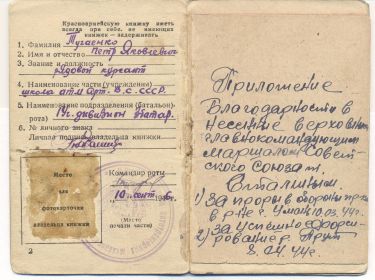 Красноармейскую книжку иметь
всегда при себе. Не имеющих
книжек — задерживать
1. Фамилия
2. Имя и отчество Петр Яковлевич
3. Звание и должность
рядовой курсант
4. Наименование части (учреждения)
школа арт. В.С. СССР.
5. Наименование подразделения (батальон,
рота) дивизион
6. № личного знака
Личная подпись владельца книжки
Командир роты
10 сент. 6 г.
Место
для
фотокарточки
владельца книжки
(Место
печати части)
2
Приложение
Благодарности в
несение верховным
главнокомандующим
маршалом Совет
ского Союза т.
Сталиным.
1) За прорыв обороны пр-ка
в р-не г. Умань 10.03.44 г.
2) За успешно форси
рование р. Прут
8.04.44 г.